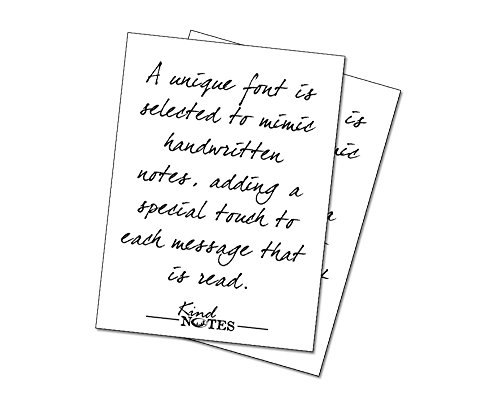 A unique font is
selected to mimic
handwritten
notes, adding a
special touch to
each message that
is read.
Kind
NOTES
is